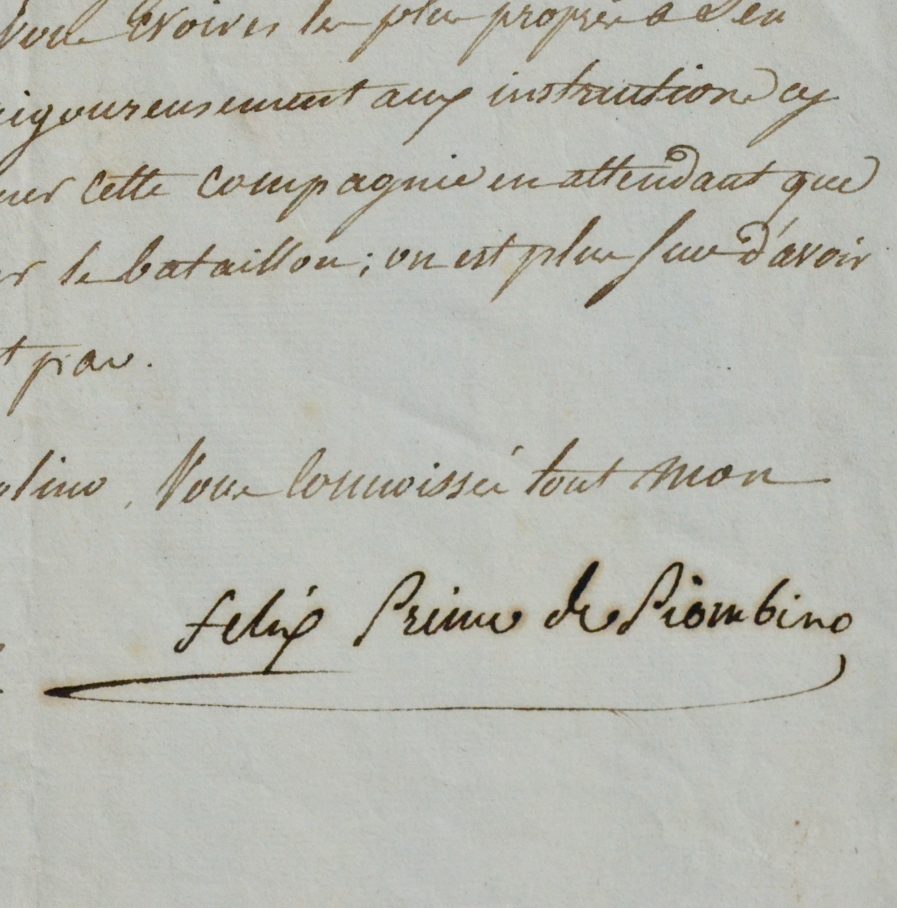 Vous croirés les plus propres à s'en
rigoureusement aux instructions cy
cette compagnie en attendant que
le bataillon ; on est plus sur d'avoir
par.
Vous connoissés tout mon
Felix Prince de Piombino